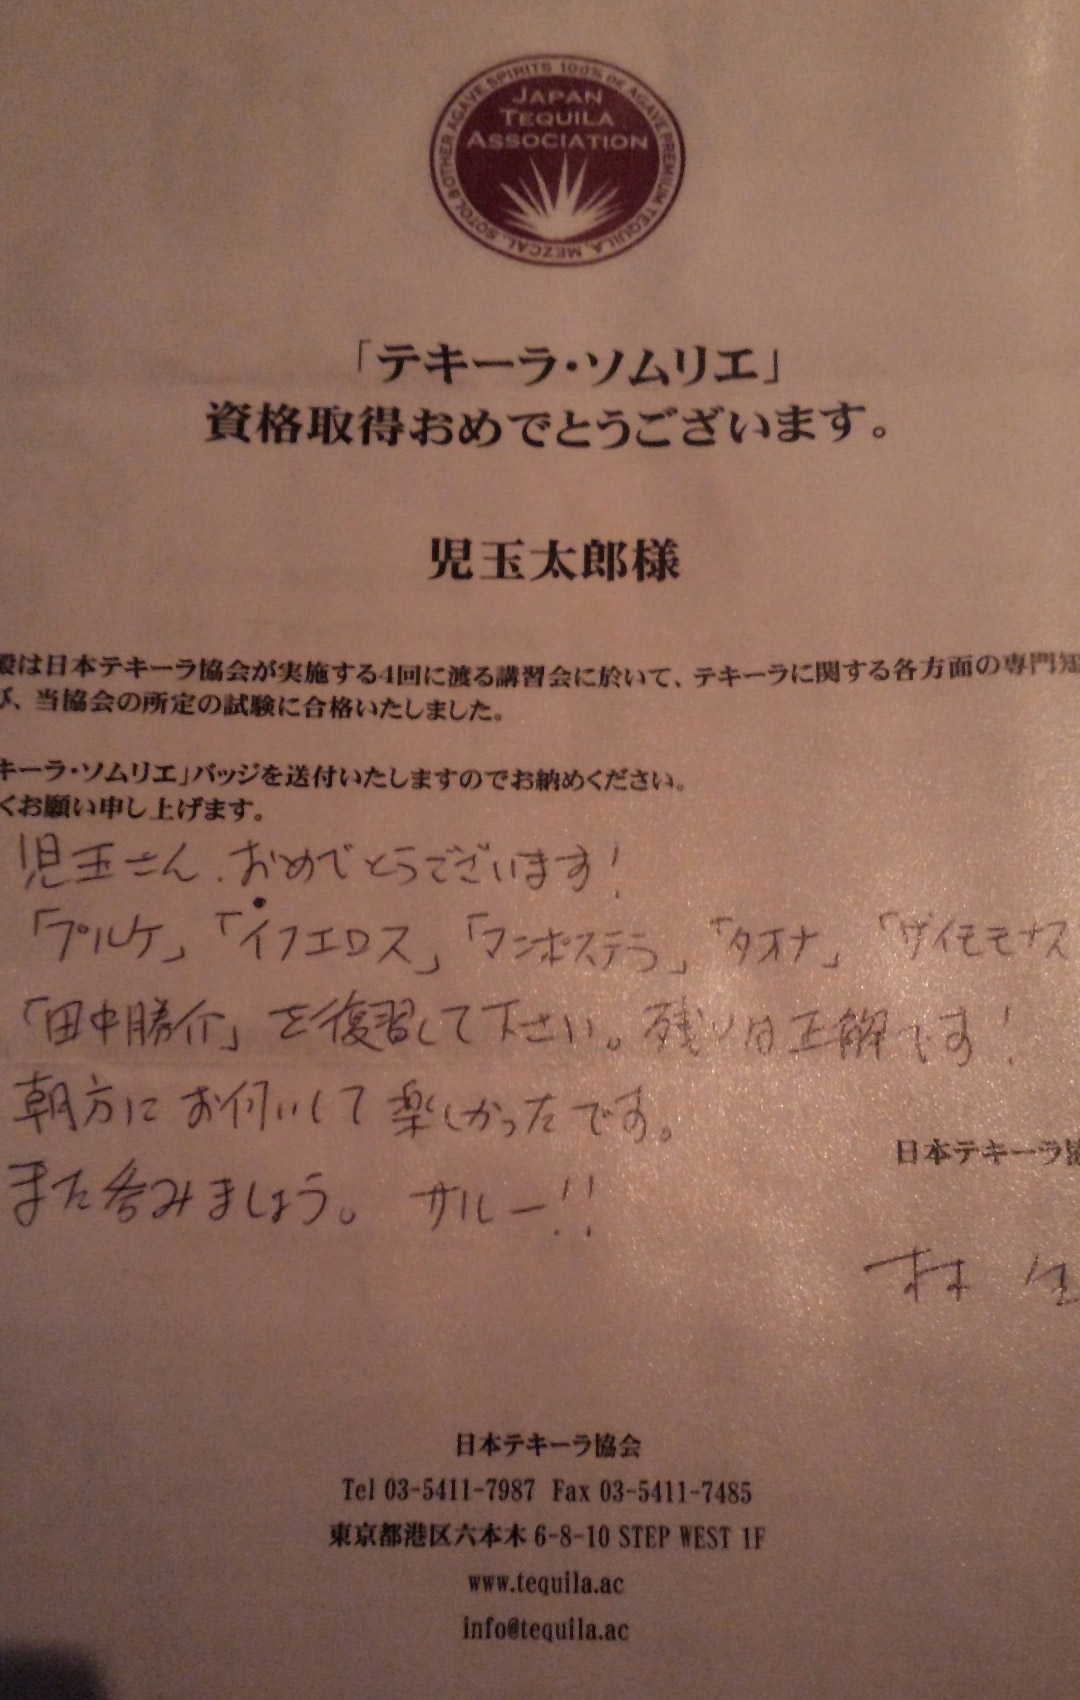 JAPAN
TEQUILA
ASSOCIATION
100% DE AGAVE PREMIUM TEQUILA, MEZCAL, SOTOL & OTHER AGAVE SPIRITS
「テキーラ・ソムリエ」
資格取得おめでとうございます。
児玉太郎様
殿は日本テキーラ協会が実施する4回に渡る講習会に於いて、テキーラに関する各方面の専門知
び、当協会の所定の試験に合格いたしました。
キーラ・ソムリエ」バッジを送付いたしますのでお納めください。
くお願い申し上げます。
児玉さん、おめでとうございます!
「プルケ」「イフエロス」「マンポステラ」「タオナ」「ザイモモナス
「田中勝介」を復習して下さい。残りは正解です!
朝方にお伺いして楽しかったです。
また呑みましょう。 サルー!!
日本テキーラ協
林 生
日本テキーラ協会
Tel 03-5411-7987 Fax 03-5411-7485
東京都港区六本木 6-8-10 STEP WEST 1F
www.tequila.ac
info@tequila.ac